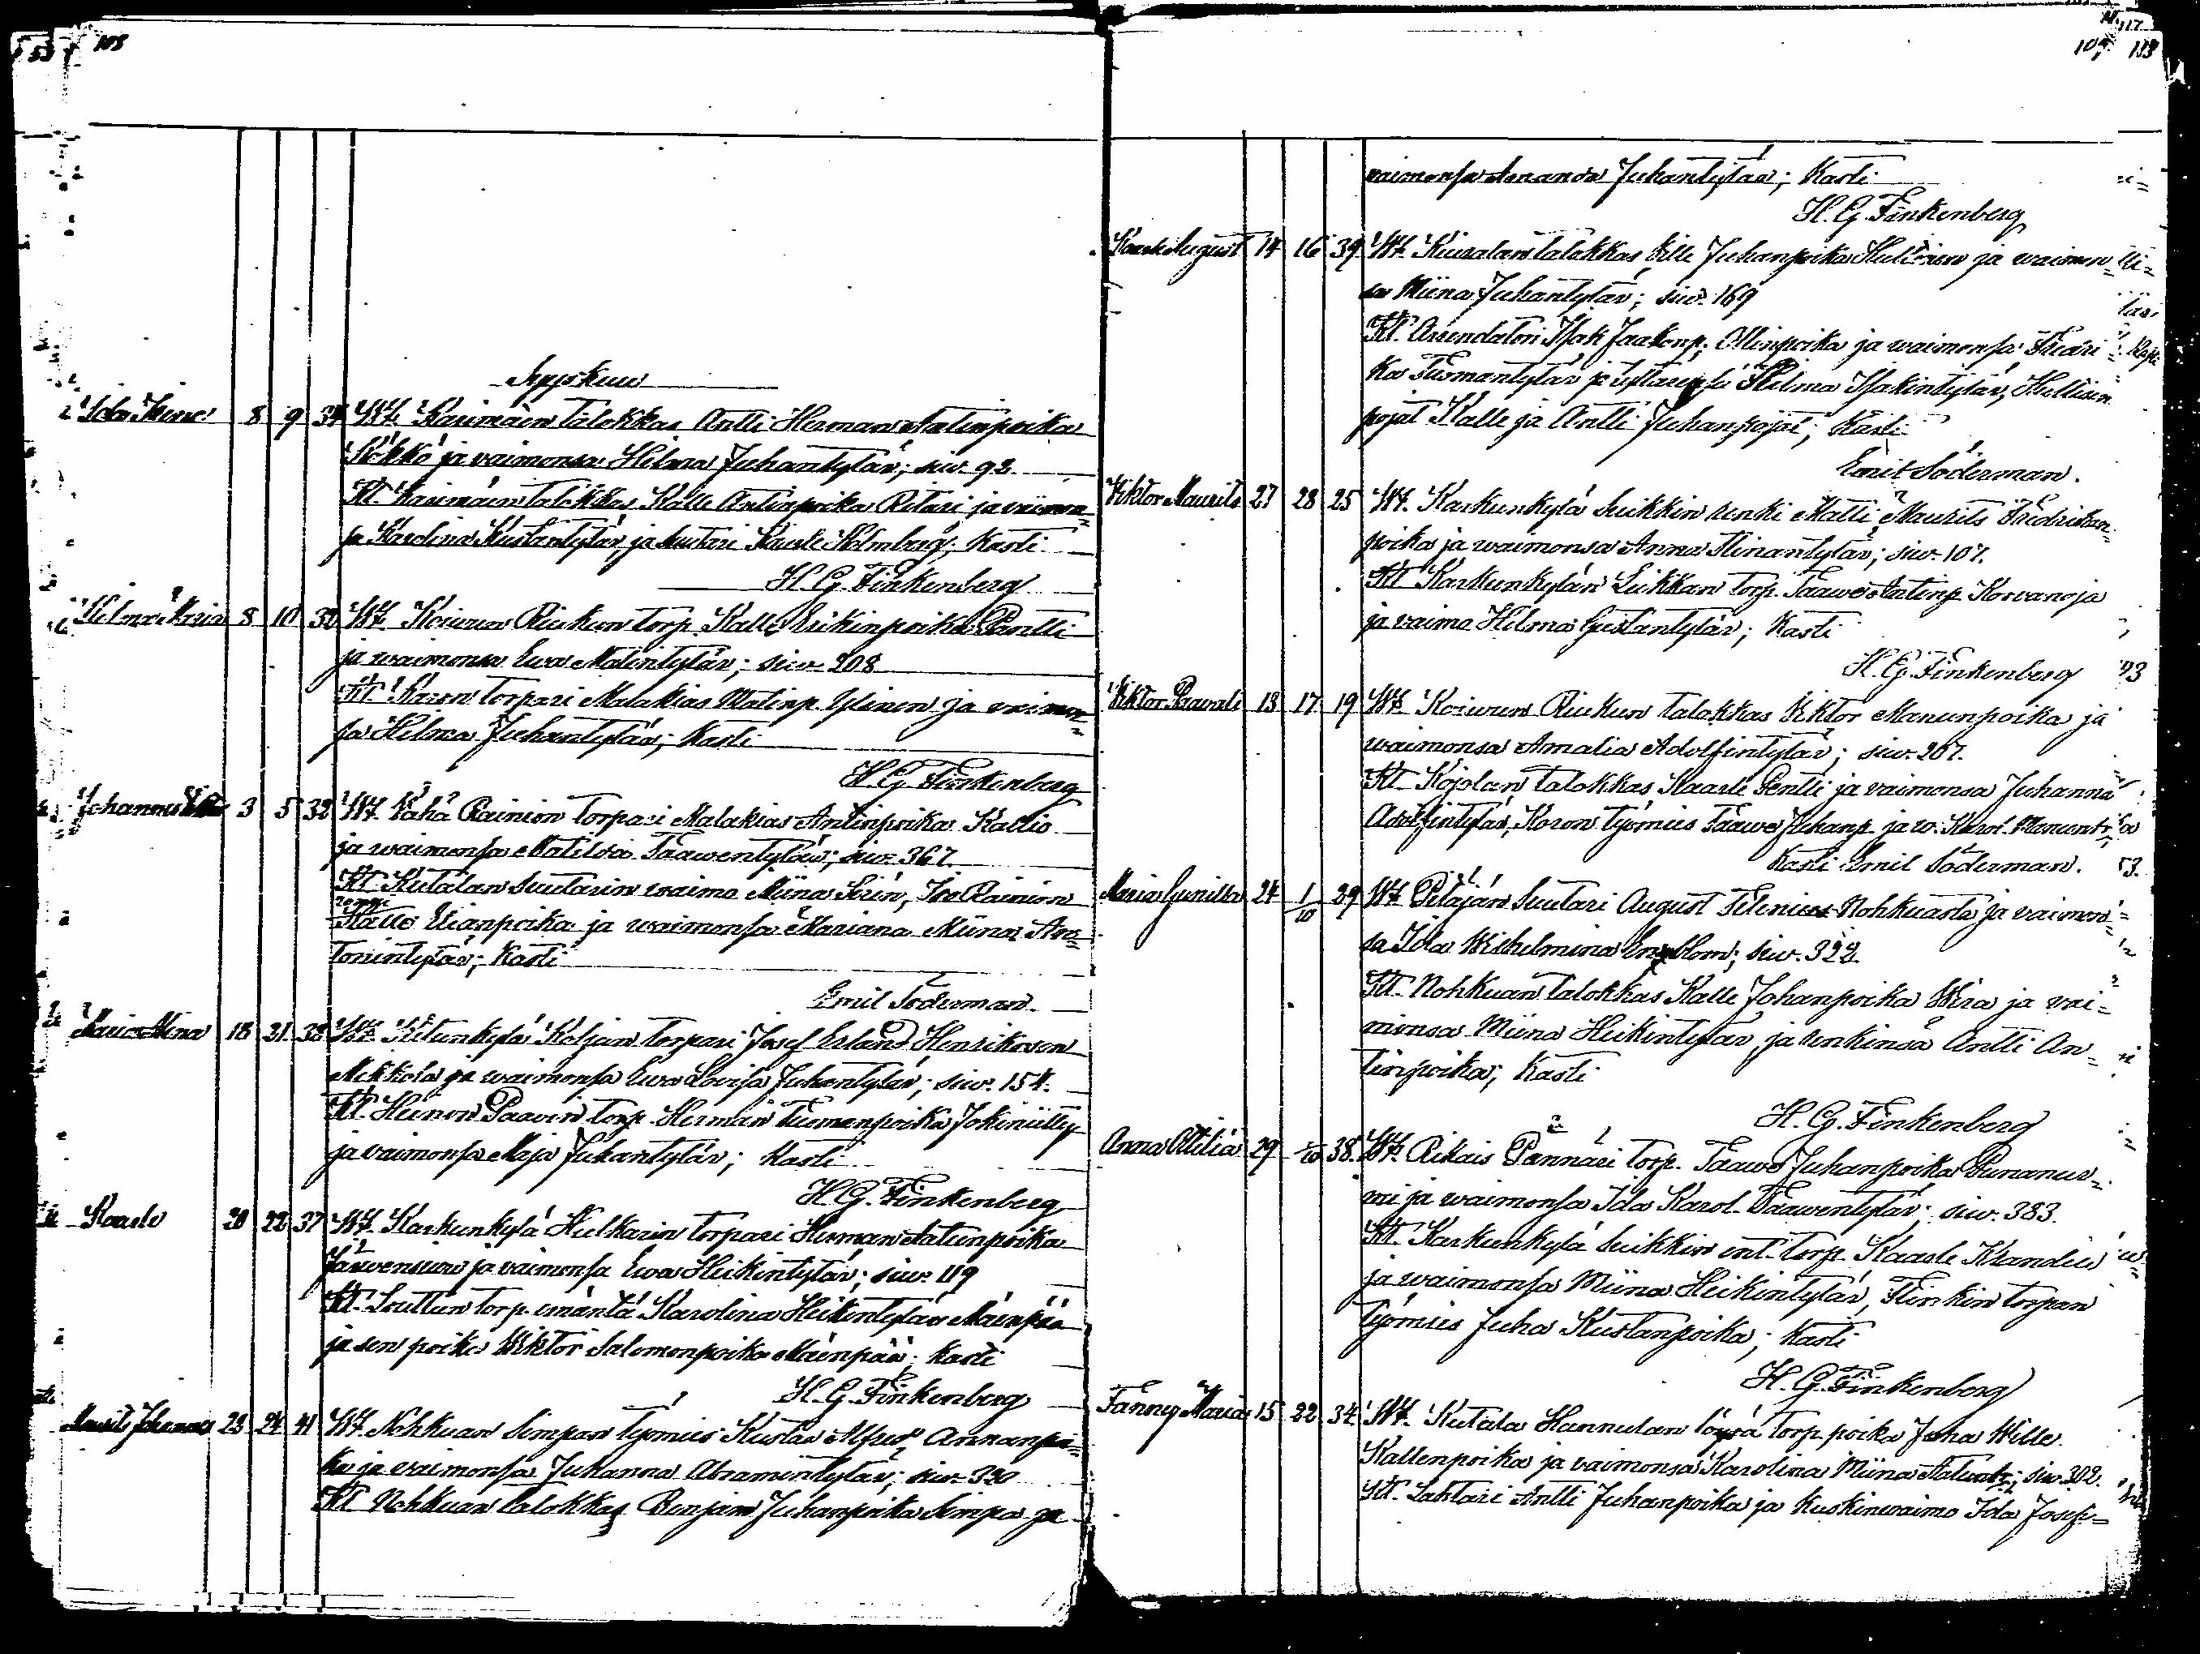 108
Syyskuu
Ida Irene 8 9 34 Wt. Karimäen talokkas Antti Herman Antinpoika
Kökkö ja vaimonsa Hilma Juhantytär; siw. 92.
Kt. Karimäen talokkas Kalle Antinpoika Ritari ja vaimon=
sa Karolina Kustantytär, ja suutari Kaarle Holmberg; Kasti
H. G. Finkenberg
Hilma Maria 8 10 38 Wt. Koiwun Riukun torp. Kalle Erikinpoika Pentti
ja waimonsa Ewa Matintytär; siw. 208
Kt. Karon torpari Malakias Matinp. Ylinen ja vaimon=
sa Hilma Juhantytär; Kasti
H. G. Finkenberg
Johannes 3 5 38 Wt. Vähä Rainion torpari Malakias Antinpoika Kallio
ja waimonsa Matilda Taawentytär; siw. 367.
Kt. Kutalan Suutarin waimo Miina Sirén, Iso Rainion
renki
Kalle Elianpoika ja waimonsa Mariana Miina An=
tonintytär; Kasti
Emil Söderman.
Maria Miina 18 21 38 Wt. Kiltunkylä Koljan torpari Josef Erland Henrikson
Mikkola ja waimonsa Ewa Lovisa Juhantytär; siw. 154.
Kt. Heinon Paavin torp. Herman Tuomanpoika Jokiniitty
ja vaimonsa Maja Juhantytär; Kasti
H. G. Finkenberg
Kaarle 20 22 37 Wt. Karhunkylä Hulkarin torpari Herman Antinpoika
Järvensivu ja vaimonsa Ewa Heikintytär; siw. 119
Kt. Souttun torp. emäntä Karolina Heikintytär Mäenpää
ja sen poika Wiktor Salomonpoika Mäenpää; Kasti
H. G. Finkenberg
Maurits Johannes 23 24 41 Wt. Nohkuan Simpan työmies Kustaa Alfred Annanpoi=
ka ja vaimonsa Juhanna Abramintytär; siw. 330
Kt. Nohkuan talokkas Benjam Juhanpoika Simpa ja
109
vaimonsa Amanda Juhantytär; Kasti
H. G. Finkenberg
Kaarle August 14 16 39 Wt. Kiuralan talokkas Wille Juhanpoika ja waimon=
sa Miina Juhantytär; siw. 169
Kt. Arendatori Isak Jaakonp. Ollinpoika ja waimonsa Fredri=
ka Tuomantytär ja tyttärensä Hilma Isakintytär,
pojat Kalle ja Antti Juhanpojat; Kasti
Emil Söderman.
Viktor Maurits 27 28 25 Wt. Karhunkylä Suikkin renki Matti Maurits Fredrikan=
poika ja waimonsa Anna Stinantytär; siw. 107.
Kt. Karhunkylän Suikkan torp. Taawe Antinp. Korvanoja
ja vaimo Hilma Gustantytär; Kasti
H. G. Finkenberg
Viktor Paavali 13 17 19 Wt. Koiwun Riukun talokkas Viktor Manunpoika ja
waimonsa Amalia Adolfintytär; siw. 207.
Kt. Kojolan talokkas Kaarle Pentti ja vaimonsa Juhanna
Adolfintytär, Koron työmies Taawe Juhanp. ja w. Karol. Manuntr.
Kasti Emil Söderman.
Maria Gunilla 24 1/10 29 Wt. Pitäjän Suutari August Telenius Nohkuasta ja vaimon=
sa Ida Wilhelmina Engblom; siw. 322.
Kt. Nohkuan talokkas Kalle Johanpoika Wira ja vai=
monsa Miina Heikintytär, ja renkinsä Antti An=
tinpoika; Kasti
H. G. Finkenberg
Anna Otilia 29 38. Wt. Rikais Pännäri torp. Taawe Juhanpoika Punanur=
mi ja waimonsa Ida Karol. Taawentytär; siw. 383.
Kt. Karhunkylä Suikkin ent. torp. Kaarle Krandin
ja waimonsa Miina Heikintytär, Flinkin torpan
työmies Juha Kustanpoika; Kasti
H. G. Finkenberg
Fanny Maria 15 22 34 Wt. Kutala Hannulan Löyrä torp. poika Juha Wille
Kallenpoika ja vaimonsa Karolina Miina Antintr; siw. 302.
Kt. Lahtari Antti Juhanpoika ja Kuskinwaimo Ida Josefi=